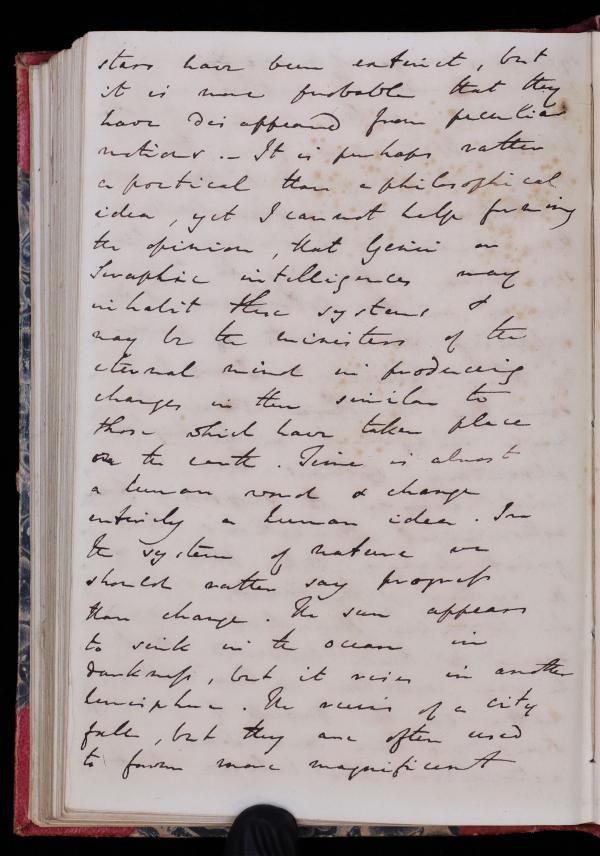 stars have been extinct, but
it is more probable that they
have disappeared from peculiar
motions. – It is perhaps rather
a poetical than a philosophical
idea, yet I cannot help forming
the opinion, that Genii or
Seraphic intelligences may
inhabit these systems &
may be the ministers of the
eternal mind in producing
changes in them similar to
those which have taken place
on the earth. Time is almost
a human word & change
entirely a human idea. In
the system of nature we
should rather say progress
than change. The sun appears
to sink in the ocean in
darkness, but it rises in another
hemisphere. The ruins of a city
fall, but they are often used
to form more magnificent